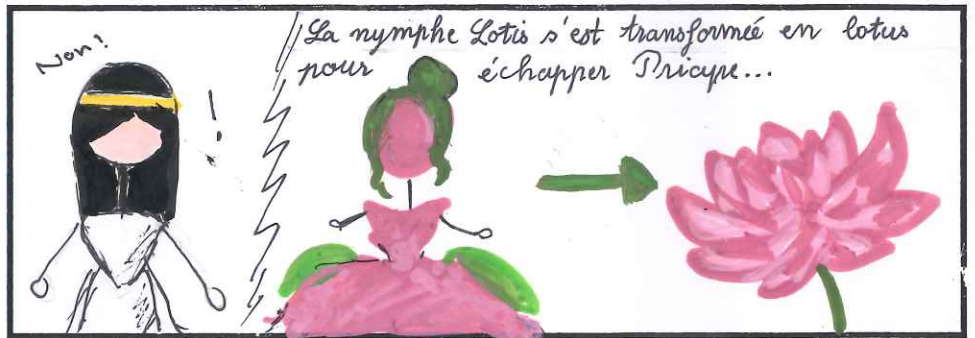 Non!
!
La nymphe Lotis s'est transformée en lotus
pour échapper Priape...